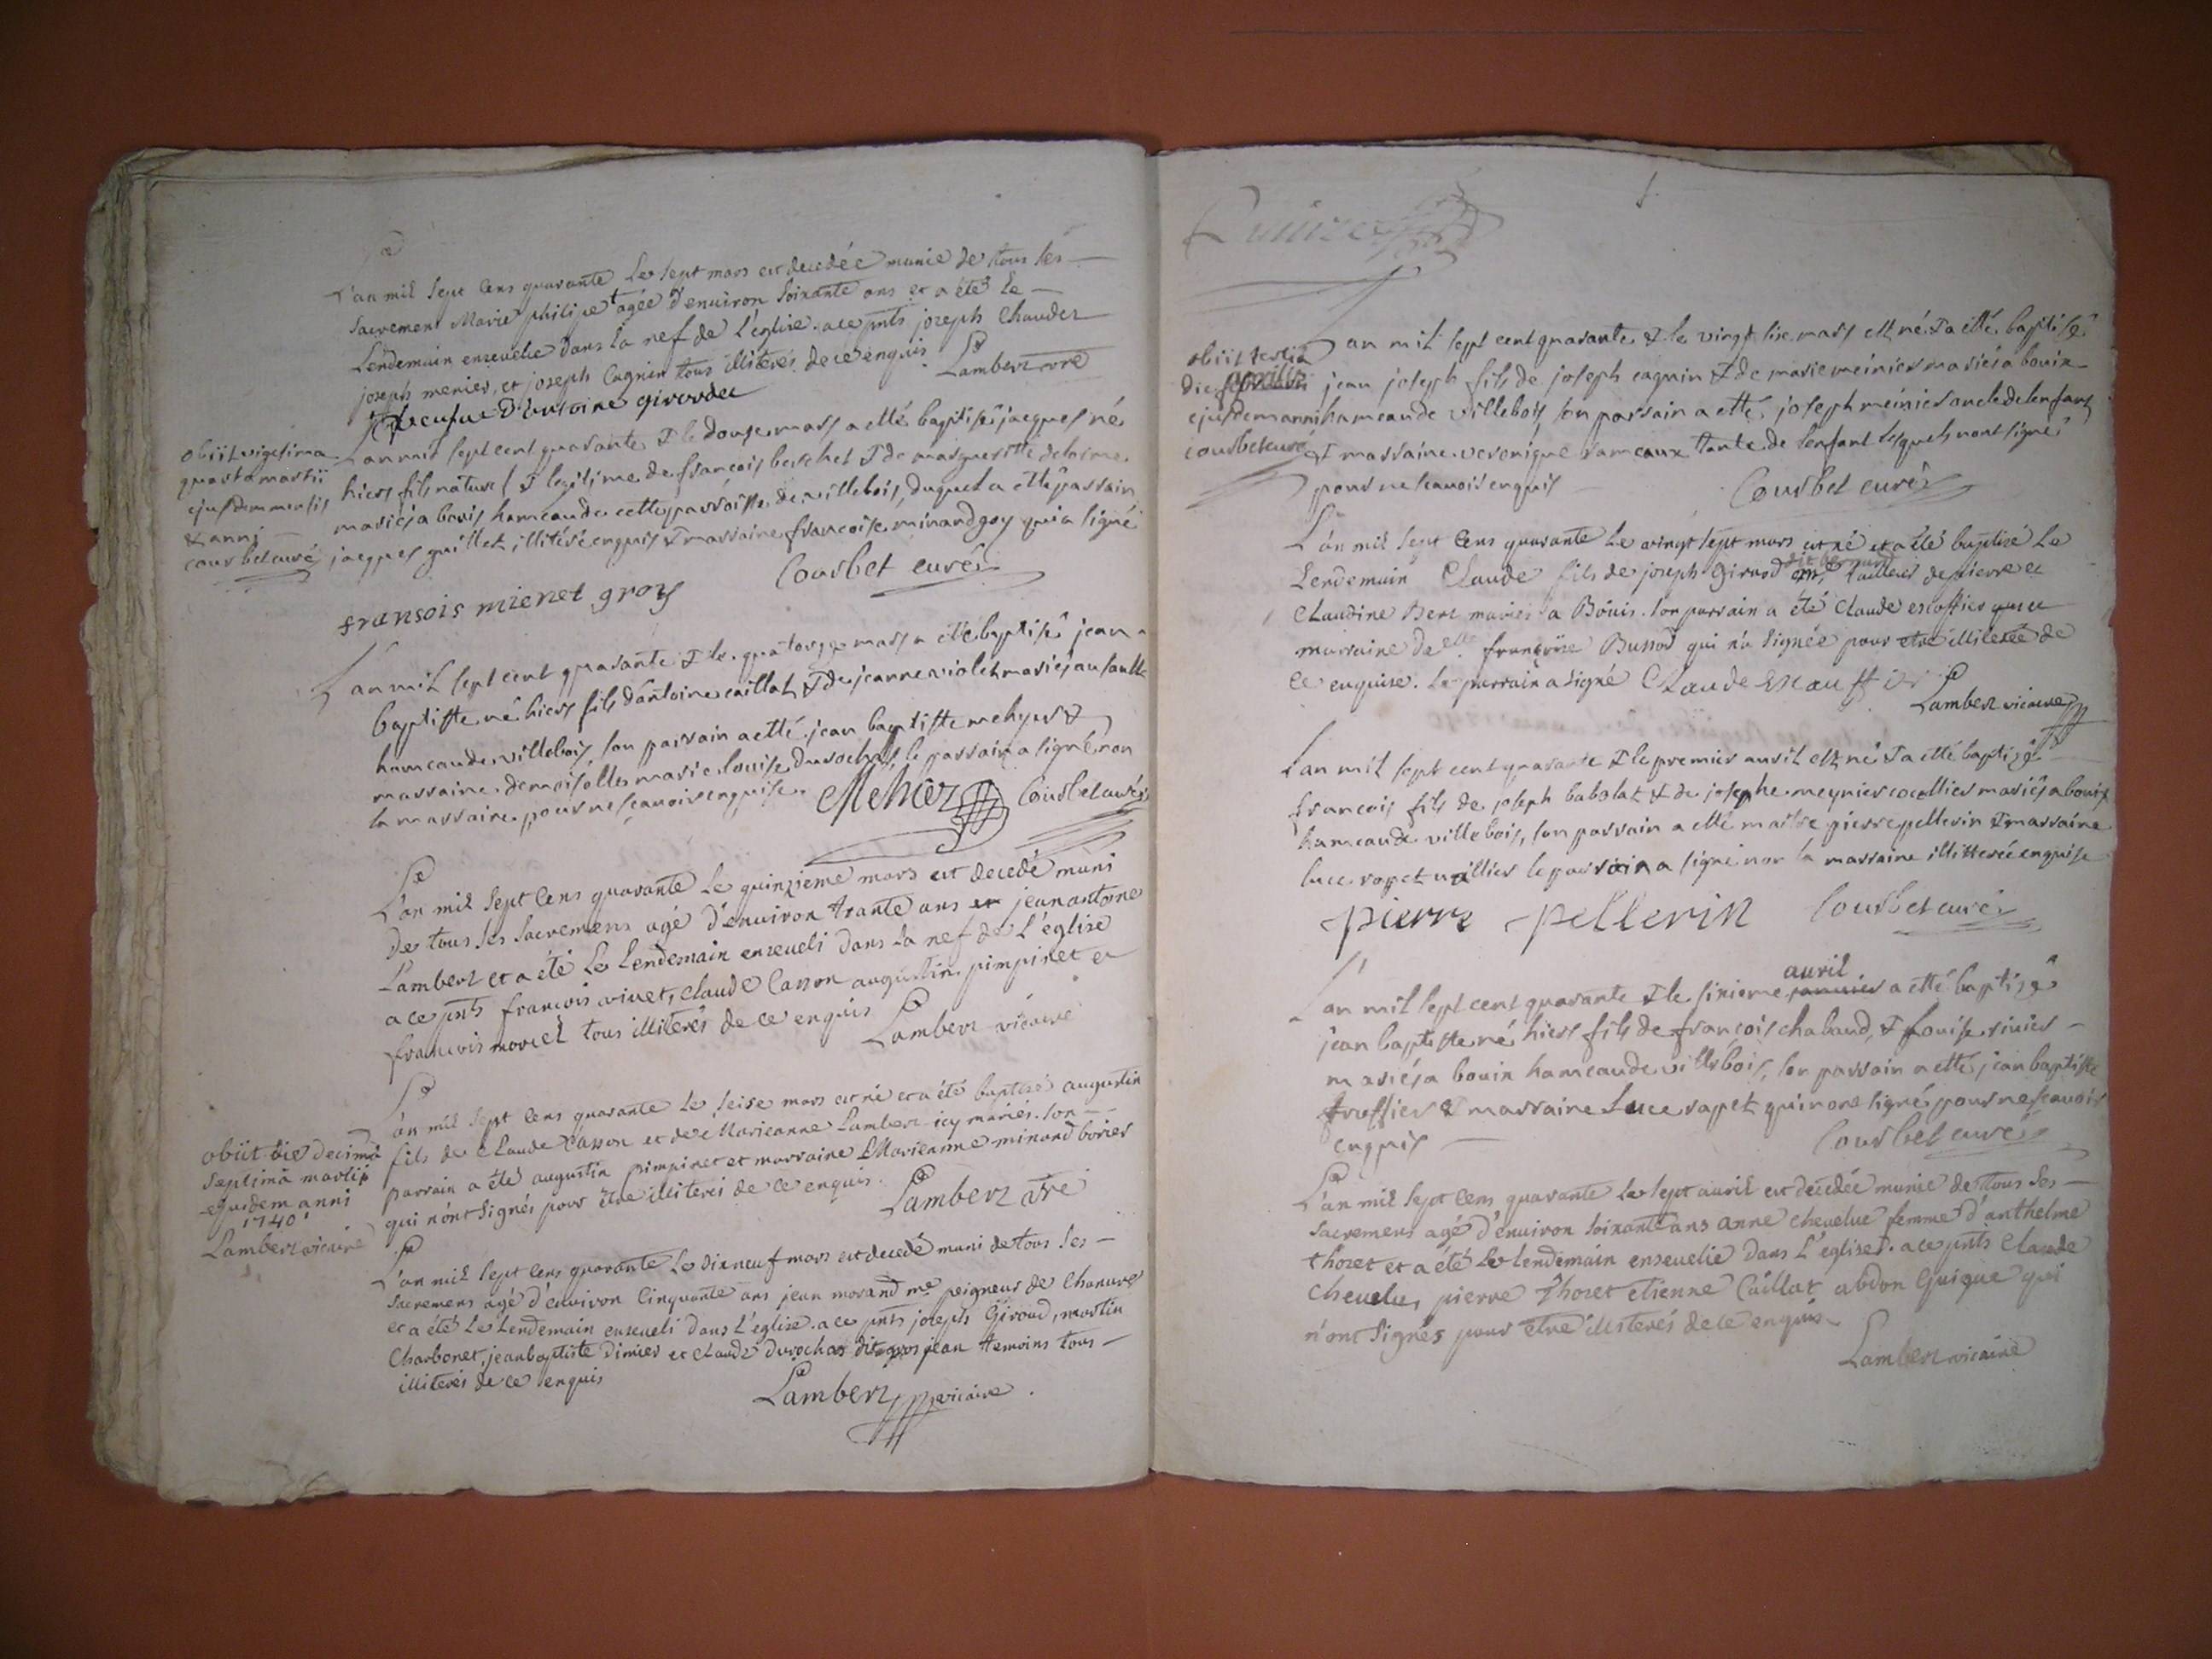 L'an mil sept cens quarante le sept mars est decedée munie de tous ses
sacremens Marie philipe + agée d'environ soixante ans et a été le
Lendemain ensevelie dans la nef de L'église. a ce pnts joseph Chaudet
joseph menier, et joseph Cagnin tous illiterés de ce enquis Lambert vre
+ veufue d'antoine giroudet
obiit vigesima
quarta martii
ejusdem mensis
& anni
courbet curé
L'an mil sept cent quarante & le douze mars a etté baptisé jacques né
hiers fils naturel & legitime de françois berchet & de margueritte delorme
mariés a bovis hameau de cette parroisse de villebois, duquel a etté parrain
jacques guillet, illitéré enquis & marraine francoise minand goy qui a signé
fransois mienet groy Courbet curé
L'an mil sept cent quarante & le quatorze mars a etté baptisé jean
baptiste né hiers fils d'antoine caillat & de jeanne violet mariés au sault
hameau de villebois, son parrain a etté jean baptiste mehyer &
marraine demoiselle marie louise durochat, le parrain a signé non
la marraine pour ne sçavoir enquise. Mehier Courbet curé
L'an mil sept cens quarante le quinzieme mars est decedé muni
de tous ses sacremens agé d'environ trante ans jean antoine
Lambert et a été le Lendemain enseveli dans la nef de L'église
a ce pnts francois vivet, claude Casson augustin pimpinet et
francois morel tous illiterés de ce enquis Lambert vicaire
obiit die decimâ
septimâ martii
ejusdem anni
1740
Lambert vicaire
L'an mil sept cens quarante le seise mars est né et a été baptisé augustin
fils de Claude Casson et de Marieanne Lambert icy mariés. son
parrain a été augustin pimpinet et marraine Marienne minand borier
qui n'ont signés pour être illiterés de ce enquis. Lambert vre
L'an mil sept cens quarante le dixneuf mars est decedé muni de tous ses
sacremens agé d'environ Cinquante ans jean morand me peigneur de Chanvre
et a été le Lendemain enseveli dans L'église. a ce pnts joseph Giroud, martin
Charbonet, jean baptiste dimier et claude durochat dit gros jean temoins tous
illiterés de ce enquis
Lambert vicaire
obiit tertia
die aprillis
ejusdem anni
courbet curé
L'an mil sept cent quarante & le vingt six mars est né & a etté baptisé
jean joseph fils de joseph cagnin & de marie meinier mariés a bouix
hameau de villebois, son parrain a etté joseph meinier oncle de lenfant
& marraine veronique rameaux tante de lenfant lesquels nont signé
pour ne scavoir enquis Courbet curé
L'an mil sept cens quarante le vingt sept mars est né et a été baptisé le
Lendemain Claude fils de joseph Girard tailleur de pierre et
Claudine Bert mariés a Bôuis. son parrain a été Claude escoffier
marraine delle françoise Bussod qui n'a signée pour etre illiterée de
ce enquise. Le parrain a signé Claude Escauffier
Lambert vicaire
L'an mil sept cent quarante & le premier avril est né & a etté baptizé
françois fils de joseph babolat & de josephe meynier cocellier mariés a bouix
hameau de villebois, son parrain a etté maitre pierre pellerin & marraine
luce rapet vallier le parrain a signé non la marraine illitterée enquise
pierre pellerin Courbet curé
L'an mil sept cent quarante & le sixieme janvier avril a etté baptizé
jean baptiste né hiers fils de françois chabaud, & Louise rivier
mariés a bouix hameau de villebois, son parrain a etté jean baptiste
truffier & marraine Luce rapet qui n'ont signé pour ne scavoir
enquis Courbet curé
L'an mil sept cens quarante le sept avril est decedée munie de tous ses
sacremens agé d'environ soixante ans anne chevelue femme d'anthelme
thozet et a été le lendemain ensevelie dans L'église. a ce pnts Claude
chevelu, pierre Thozet etienne Caillat abdon Guigue qui
n'ont signés pour etre illiterés de ce enquis
Lambert vicaire